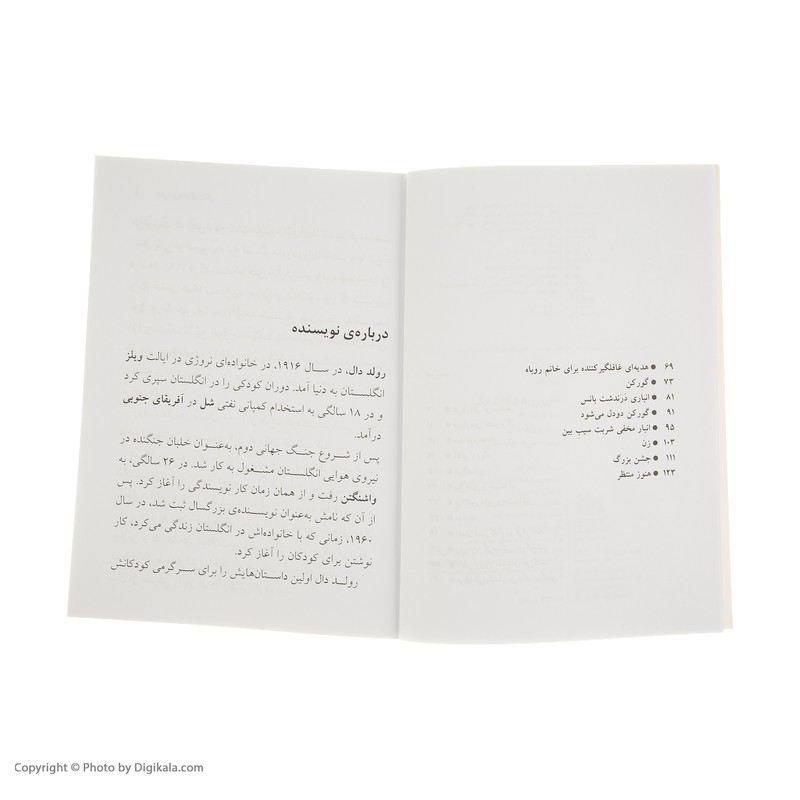 ۶۹ ● هدیه‌ای غافلگیرکننده برای خانم روباه
۷۳ ● گورکن
۸۱ ● انباری دَرَندشت بانس
۹۱ ● گورکن دودل می‌شود
۹۵ ● انبار مخفی شربت سیب بین
۱۰۳ ● زن
۱۱۱ ● جشن بزرگ
۱۲۳ ● هنوز منتظر
درباره‌ی نویسنده
رولد دال، در سال ۱۹۱۶، در خانواده‌ای نروژی در ایالت ویلز
انگلستان به دنیا آمد. دوران کودکی را در انگلستان سپری کرد
و در ۱۸ سالگی به استخدام کمپانی نفتی شل در آفریقای جنوبی
درآمد.
پس از شروع جنگ جهانی دوم، به‌عنوان خلبان جنگنده در
نیروی هوایی انگلستان مشغول به کار شد. در ۲۶ سالگی، به
واشنگتن رفت و از همان زمان کار نویسندگی را آغاز کرد. پس
از آن که نامش به‌عنوان نویسنده‌ی بزرگسال ثبت شد، در سال
۱۹۶۰، زمانی که با خانواده‌اش در انگلستان زندگی می‌کرد، کار
نوشتن برای کودکان را آغاز کرد.
رولد دال اولین داستان‌هایش را برای سرگرمی کودکانش
Copyright © Photo by Digikala.com